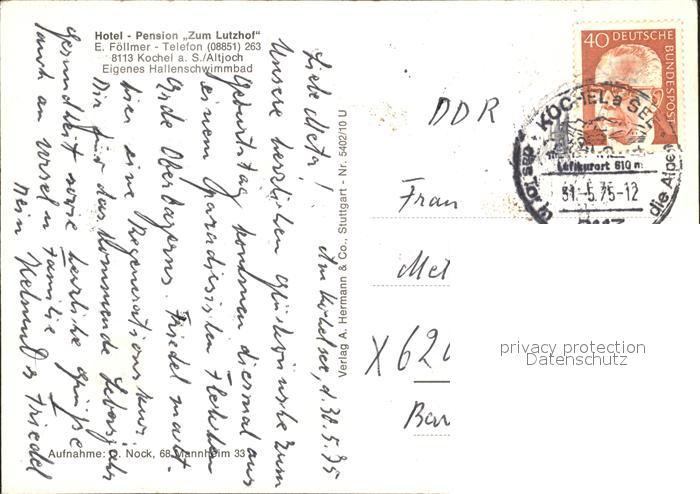 Hotel - Pension „Zum Lutzhof"
E. Föllmer - Telefon (08851) 263
8113 Kochel a. S./Altjoch
Eigenes Hallenschwimmbad
Liebe Meta!
Am Kochelsee, d. 30.5.75
Unsere herzlichen Glückwünsche zum
Geburtstag kommen diesmal aus
einem paradiesischen Fleckchen
Erde Oberbayerns. Friedel macht
hier eine Regenerationskur.
Dir für das kommende Lebensjahr
Gesundheit sowie herzliche Grüße
auch an Familie
Dein Helmut u Friedel
Aufnahme: O. Nock, 68 Mannheim 33
Verlag A. Hermann & Co., Stuttgart - Nr. 5402/10 U
40
DEUTSCHE
BUNDESPOST
KOCHEL a SEE
Luftkurort 610 m
31.-5.75-12
das Tor in die Alpen
DDR
Frau
Met
X 620
Bar
privacy protection
Datenschutz